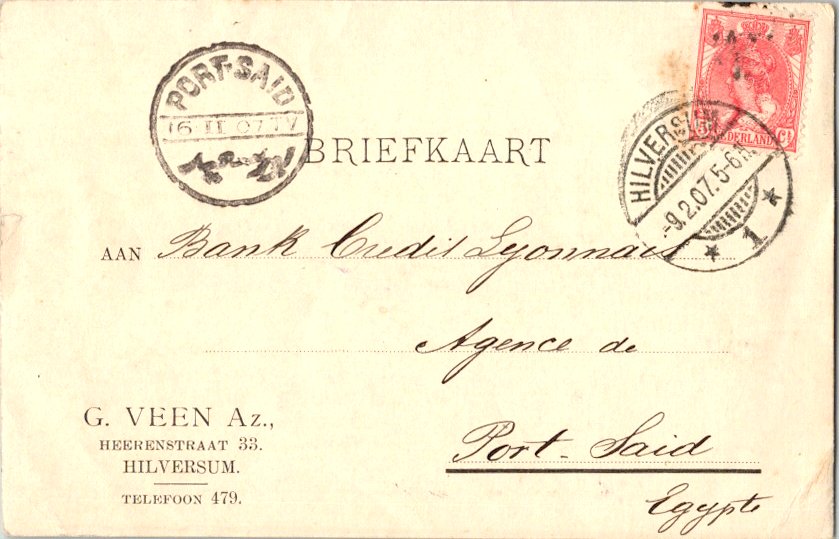 PORT-SAID
16 II 07
BRIEFKAART
NEDERLAND
5 Ct
HILVERSUM
-9.2.07.5-6N
1
AAN Bank Credit Lyonnais
Agence de
Port-Said
Egypte
G. VEEN Az.,
HEERENSTRAAT 33.
HILVERSUM.
TELEFOON 479.